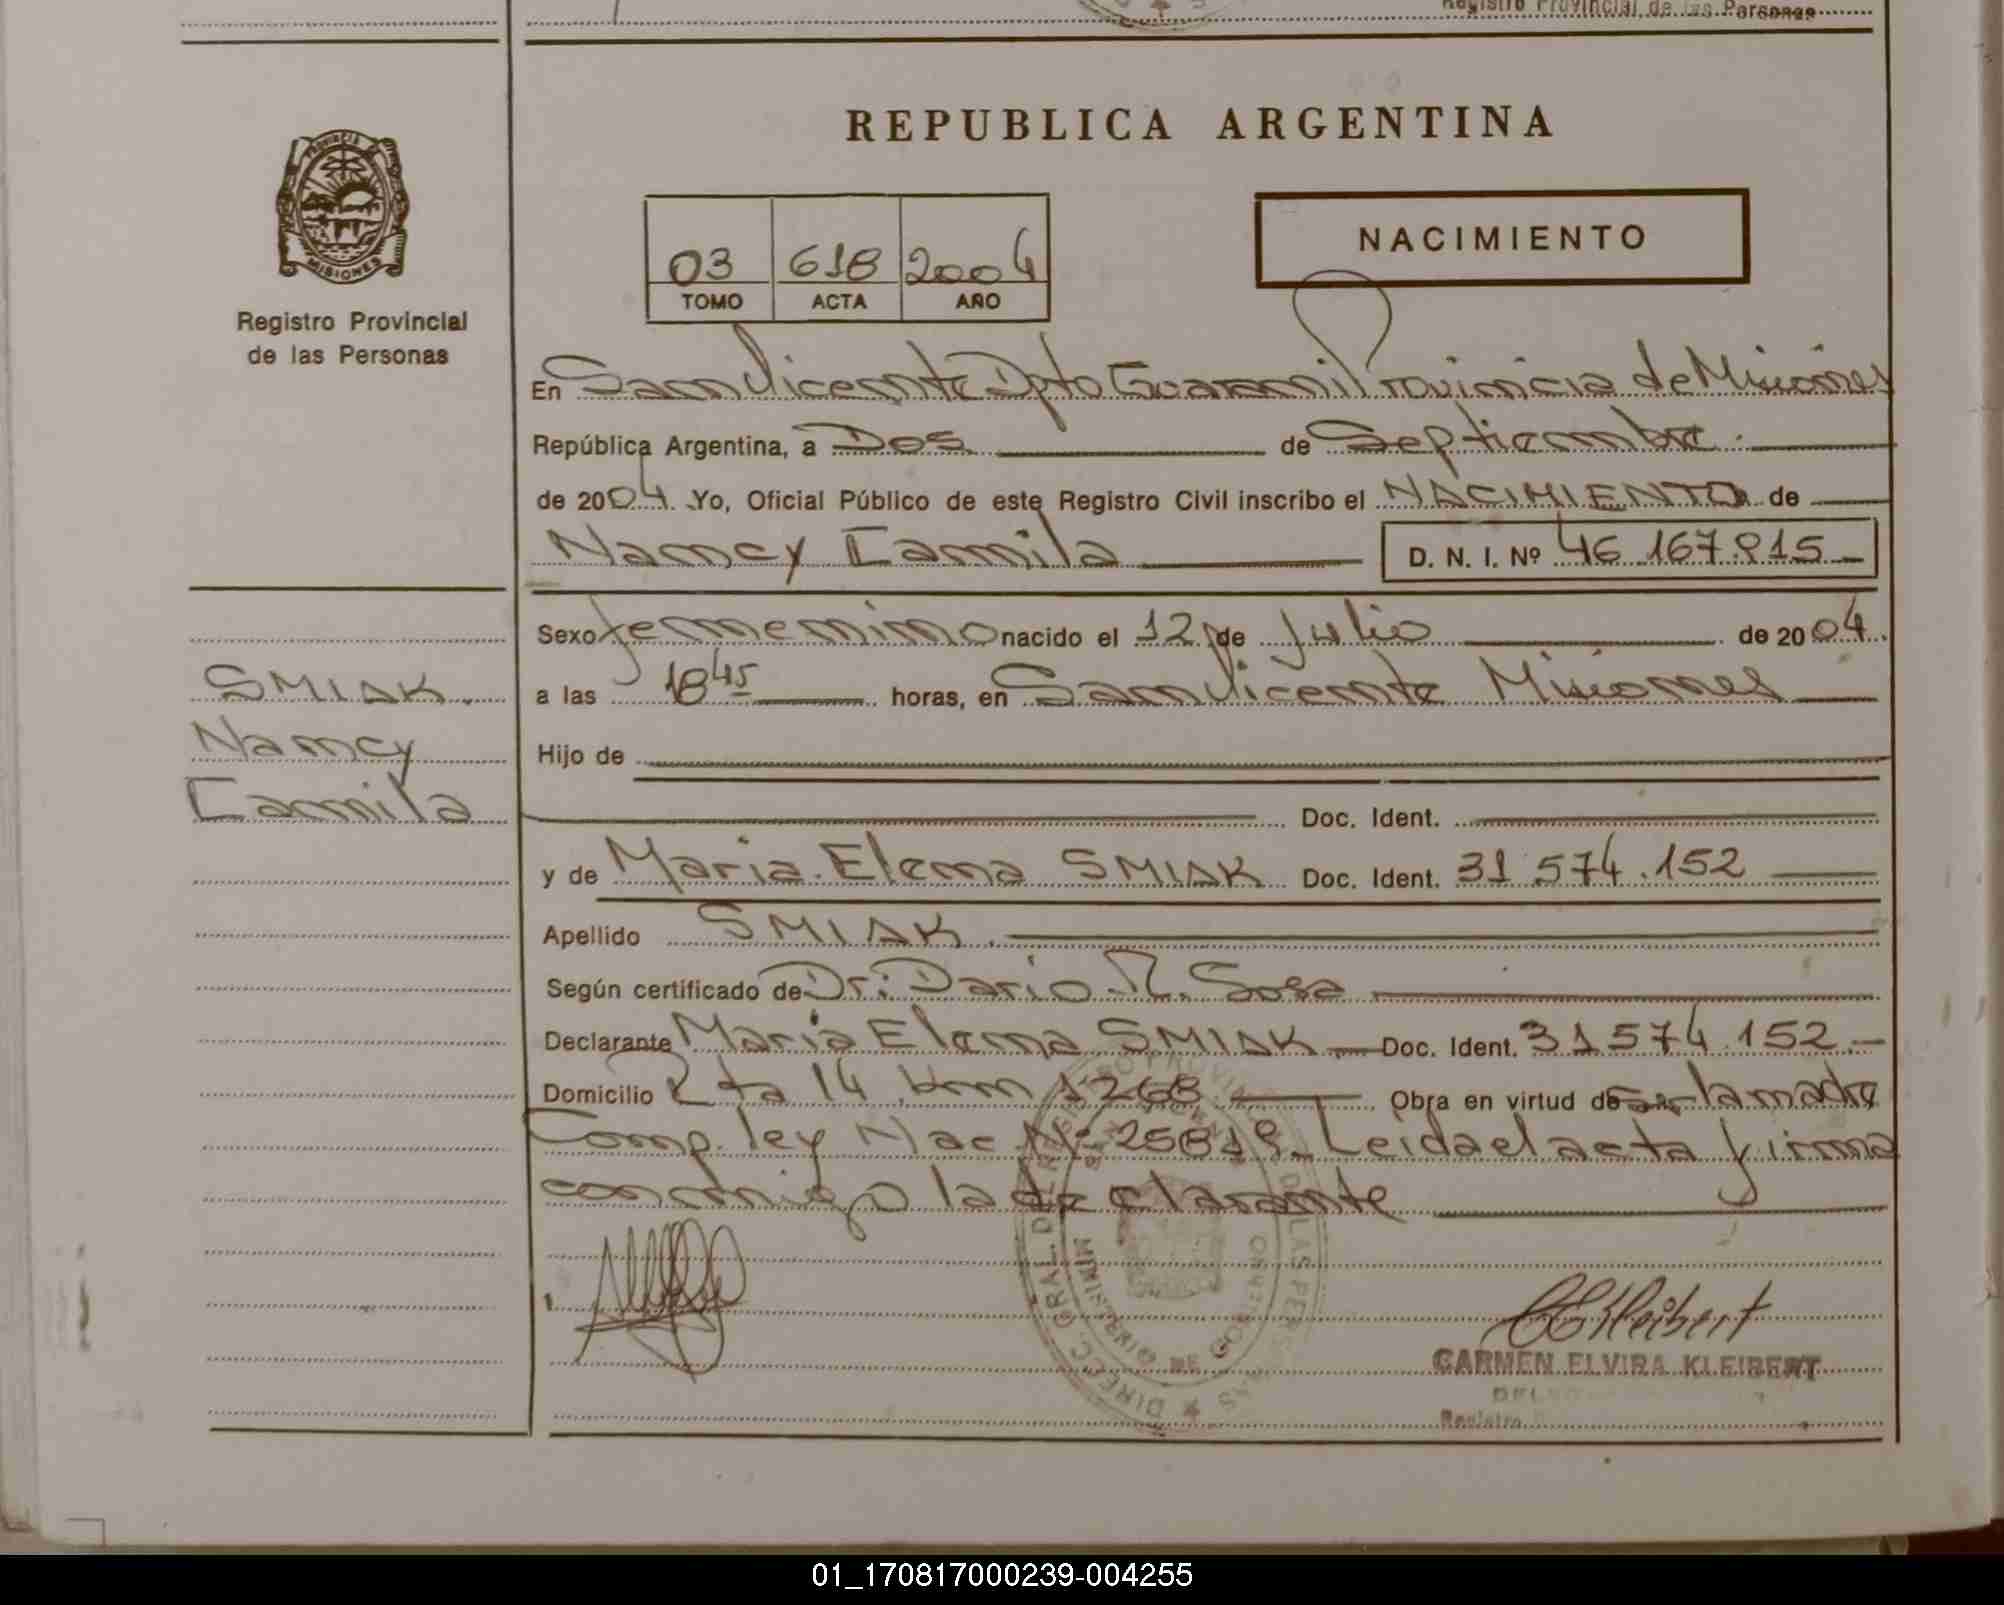 Registro Provincial de las Personas
PROVINCIA
MISIONES
Registro Provincial
de las Personas
REPUBLICA ARGENTINA
03 618 2004
TOMO ACTA AÑO
NACIMIENTO
En San Vicente Dpto Guarani Provincia de Misiones
República Argentina, a Dos de Septiembre.
de 2004. Yo, Oficial Público de este Registro Civil inscribo el NACIMIENTO de
Nancy Camila D. N. I. Nº 46.167.815
Sexo femenino nacido el 12 de Julio de 2004.
a las 18 45 horas, en San Vicente Misiones
Hijo de
Doc. Ident.
y de Maria Elena SMIAK Doc. Ident. 31.574.152
Apellido SMIAK
Según certificado de Dr: Dario R. Sosa
Declarante Maria Elena SMIAK Doc. Ident. 31574.152.
Domicilio Rta 14 Km 1268 Obra en virtud de Ser la madre
Comp. ley Nac. Nº 25819. Leida el acta firma
conmigo la declarante
SMIAK
Nancy
Camila
CEKleibert
CARMEN ELVIRA KLEIBERT
Registro
01_170817000239-004255